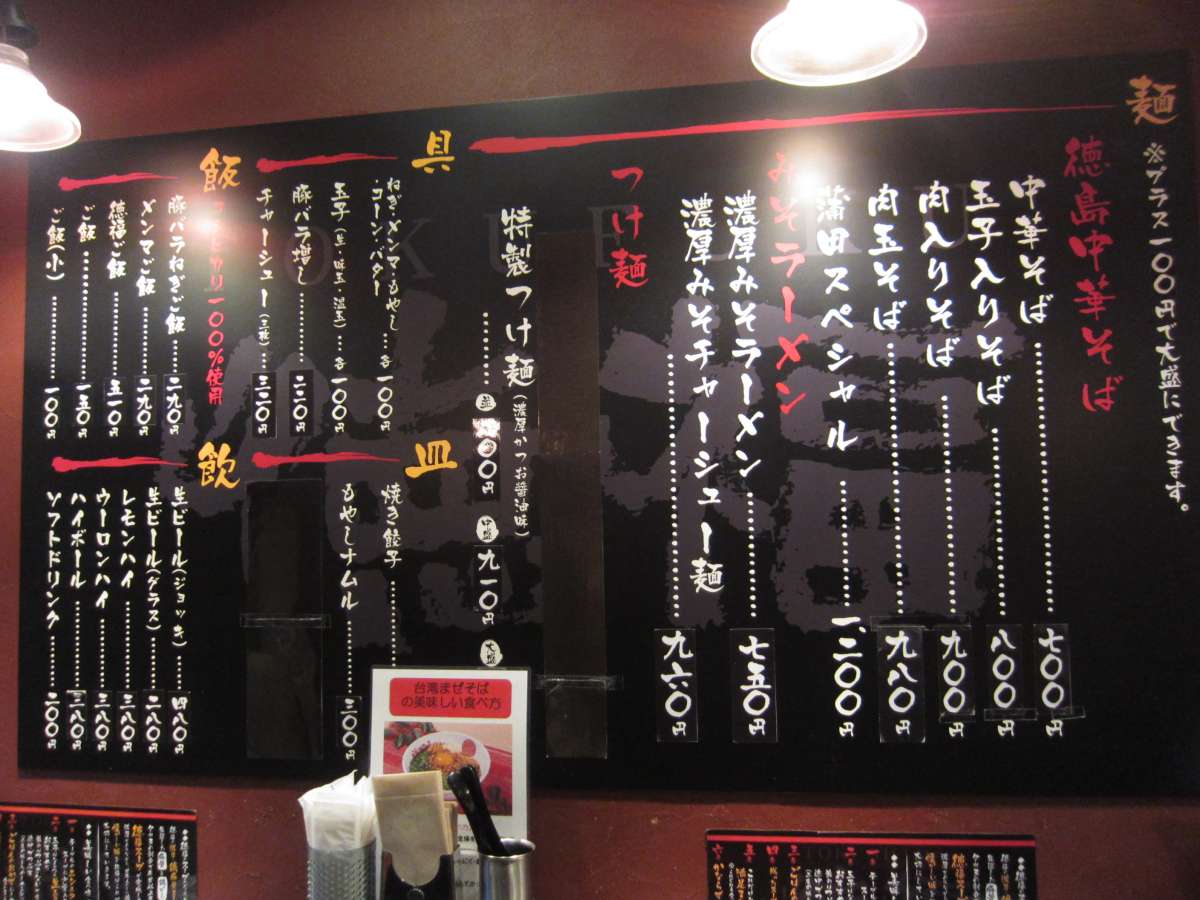 麺
※プラス一〇〇円で大盛にできます。
徳島中華そば
中華そば 七〇〇円
玉子入りそば 八〇〇円
肉入りそば 九〇〇円
肉玉そば 九八〇円
蒲田スペシャル 一、二〇〇円
みそラーメン
濃厚みそラーメン 七五〇円
濃厚みそチャーシュー麺 九六〇円
つけ麺
特製つけ麺(濃厚かつお醤油味)
並 〇〇円 中盛 九一〇円 大盛
具
ねぎ・メンマ・もやし
・コーン・バター 各一〇〇円
玉子(生・味玉・温玉) 各一〇〇円
豚バラ増し 二二〇円
チャーシュー(三枚) 三二〇円
皿
焼き餃子
もやしナムル 二〇〇円
飯
コシヒカリ一〇〇%使用
豚バラねぎご飯 二九〇円
メンマご飯 二九〇円
徳福ご飯 五一〇円
ご飯 一五〇円
ご飯(小) 一〇〇円
飲
生ビール(ジョッキ) 四八〇円
生ビール(グラス) 二八〇円
レモンハイ 三八〇円
ウーロンハイ 三八〇円
ハイボール 三八〇円
ソフトドリンク 二〇〇円
台湾まぜそば
の美味しい食べ方